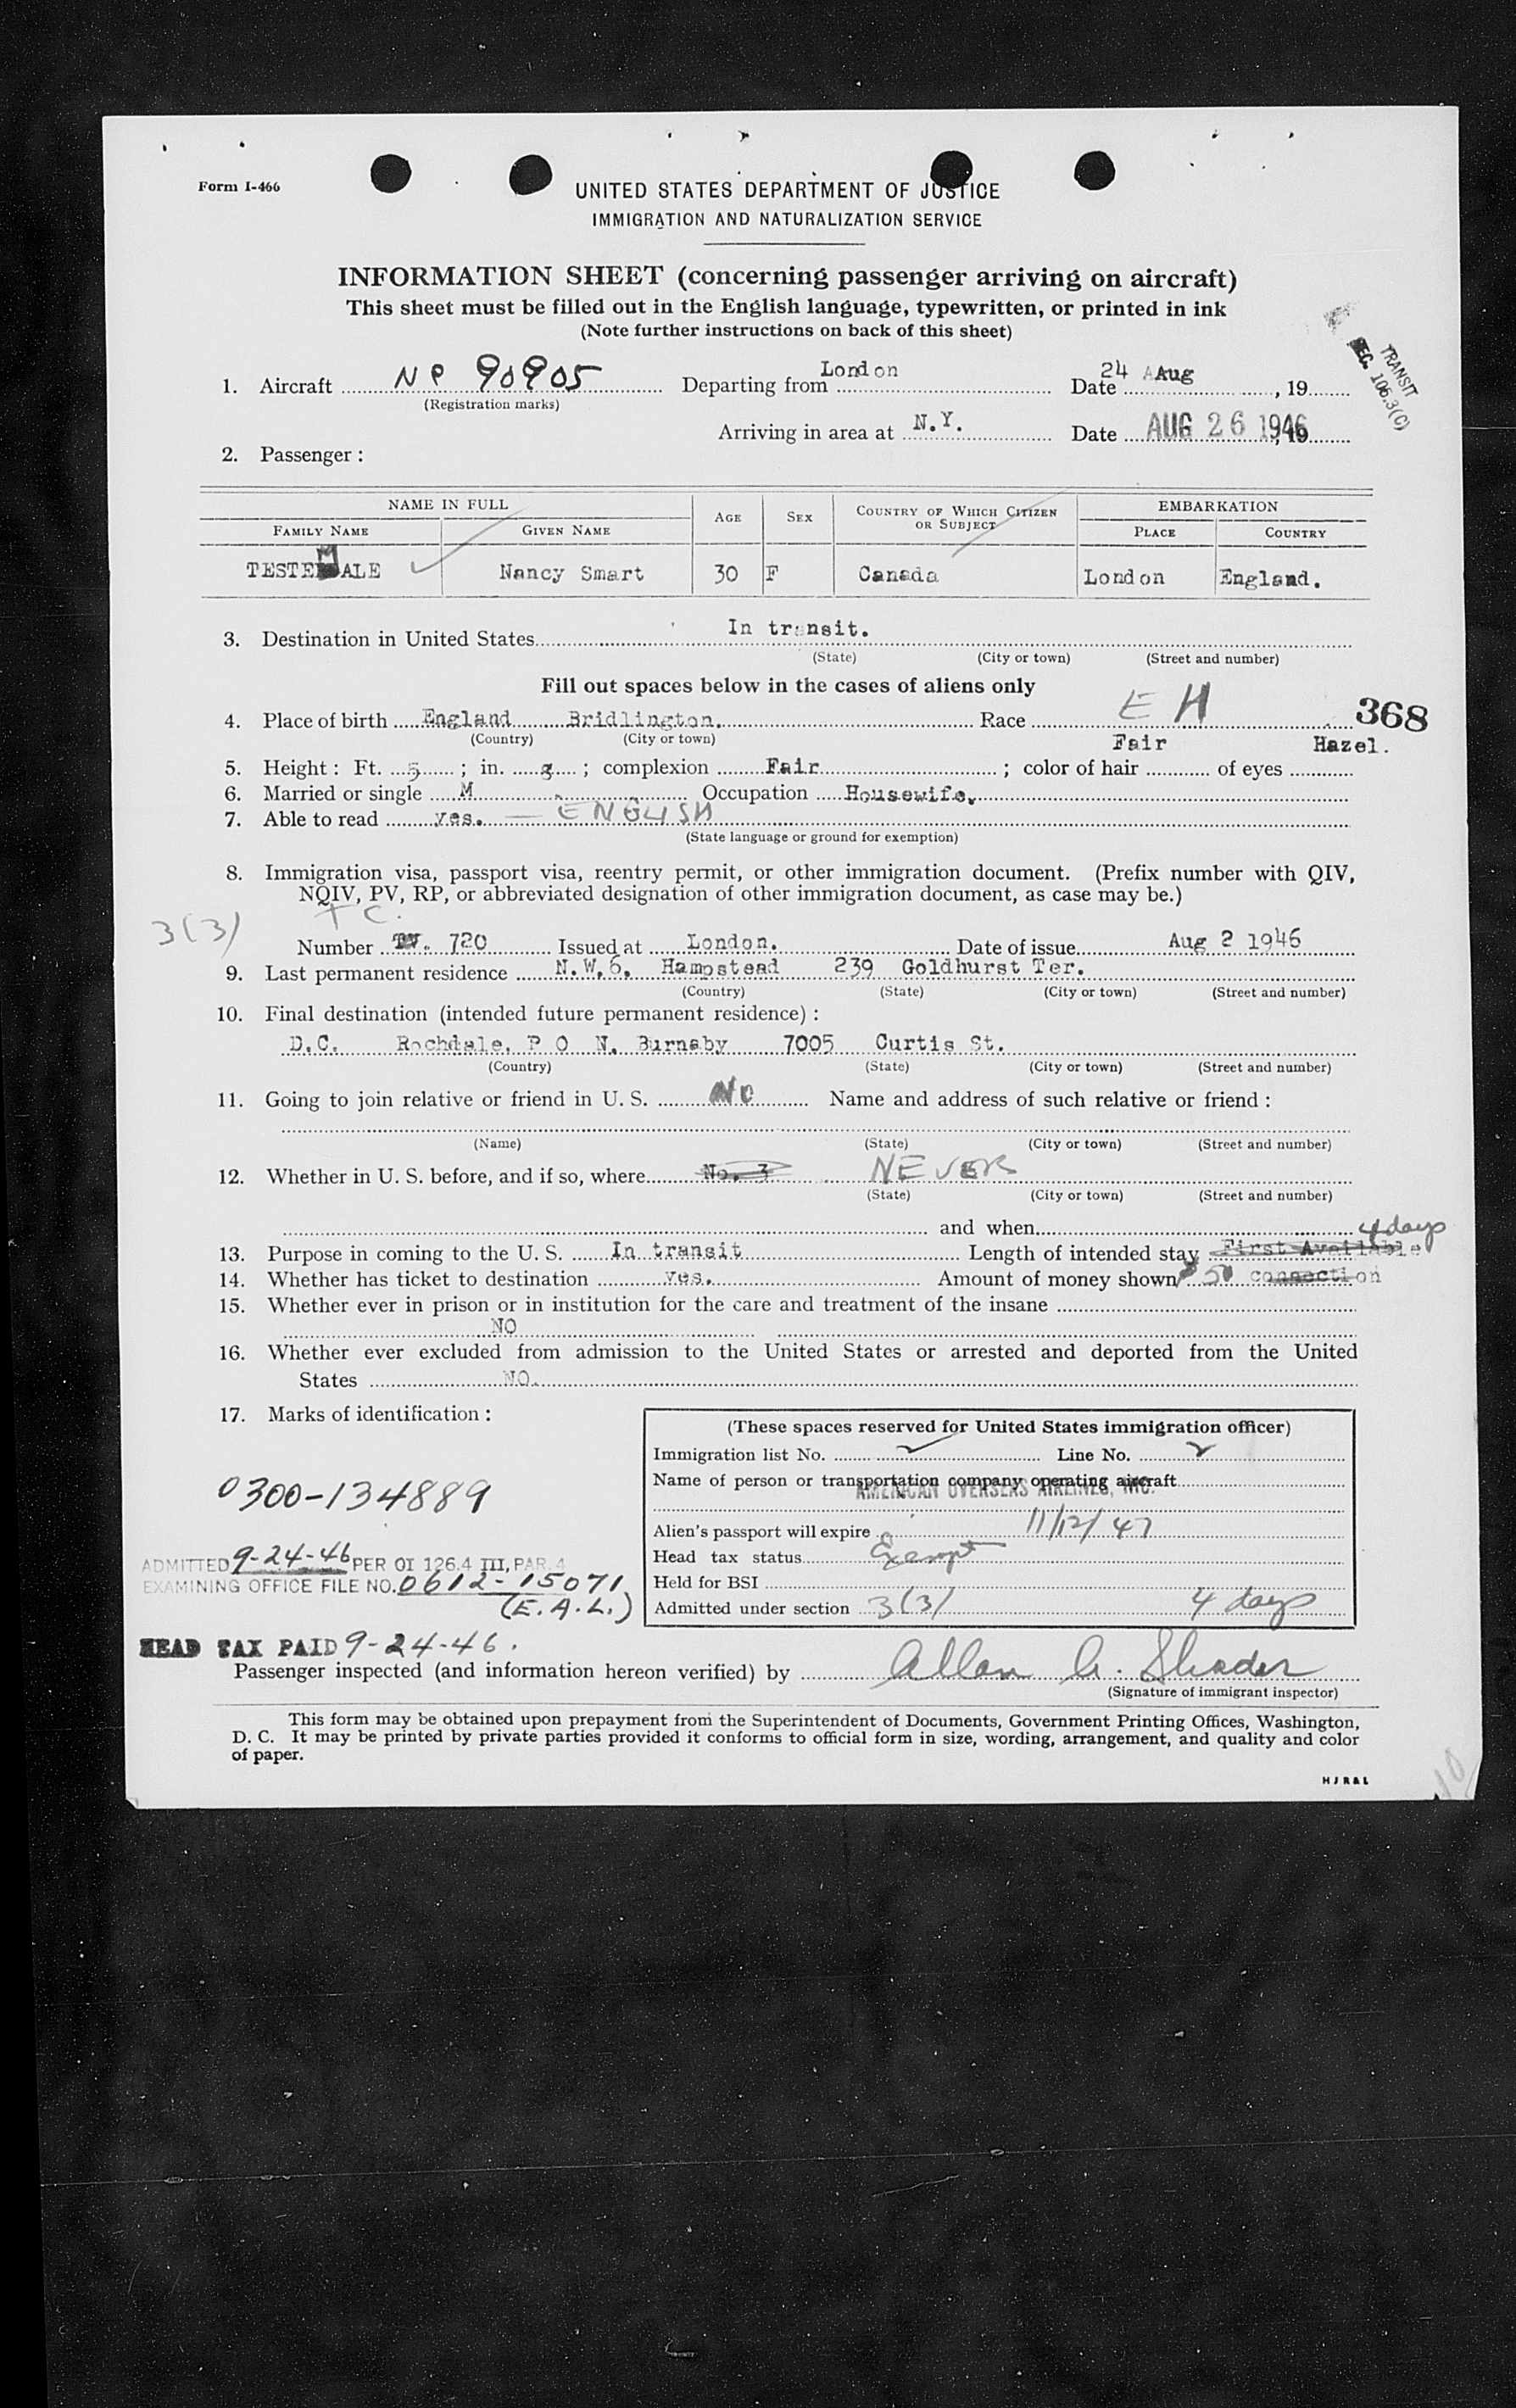 Form I-466
UNITED STATES DEPARTMENT OF JUSTICE
IMMIGRATION AND NATURALIZATION SERVICE
INFORMATION SHEET (concerning passenger arriving on aircraft)
This sheet must be filled out in the English language, typewritten, or printed in ink
(Note further instructions on back of this sheet)
TRANSIT
SEC. 106.3(C)
1. Aircraft 90905 Departing from London Date 24 Aug , 19
(Registration marks)
Arriving in area at N.Y. Date AUG 26 1946
2. Passenger :
NAME IN FULL AGE SEX COUNTRY OF WHICH CITIZEN OR SUBJECT EMBARKATION
FAMILY NAME GIVEN NAME PLACE COUNTRY
TESTEMALE Nancy Smart 30 F Canada London England.
3. Destination in United States In transit.
(State) (City or town) (Street and number)
Fill out spaces below in the cases of aliens only
4. Place of birth England Bridlington. Race E H 368
(Country) (City or town)
Fair Hazel.
5. Height : Ft. 5 ; in. ; complexion Fair ; color of hair of eyes
6. Married or single M Occupation Housewife.
7. Able to read yes. — ENGLISH
(State language or ground for exemption)
8. Immigration visa, passport visa, reentry permit, or other immigration document. (Prefix number with QIV,
NQIV, PV, RP, or abbreviated designation of other immigration document, as case may be.)
3(3) T C.
Number TV. 720 Issued at London. Date of issue Aug 2 1946
9. Last permanent residence N.W.6. Hampstead 239 Goldhurst Ter.
(Country) (State) (City or town) (Street and number)
10. Final destination (intended future permanent residence) :
D.C. Rochdale. P O N. Burnaby 7005 Curtis St.
(Country) (State) (City or town) (Street and number)
11. Going to join relative or friend in U. S. NO Name and address of such relative or friend :
(Name) (State) (City or town) (Street and number)
12. Whether in U. S. before, and if so, where No. 3 NEVER
(State) (City or town) (Street and number)
and when 4 days
13. Purpose in coming to the U. S. In transit Length of intended stay First Available
14. Whether has ticket to destination yes. Amount of money shown $ 50 connection
15. Whether ever in prison or in institution for the care and treatment of the insane
NO
16. Whether ever excluded from admission to the United States or arrested and deported from the United
States NO.
17. Marks of identification :
0300-134889
ADMITTED 9-24-46 PER OI 126.4 III, PAR. 4
EXAMINING OFFICE FILE NO. 0612-15071
(E.A.L.)
HEAD TAX PAID 9-24-46.
(These spaces reserved for United States immigration officer)
Immigration list No. 2 Line No. 2
Name of person or transportation company operating aircraft
AMERICAN OVERSEAS AIRLINES, INC.
Alien's passport will expire 11/12/47
Head tax status Exempt
Held for BSI
Admitted under section 3(3) 4 days
Passenger inspected (and information hereon verified) by Allan G. Shader
(Signature of immigrant inspector)
This form may be obtained upon prepayment from the Superintendent of Documents, Government Printing Offices, Washington,
D. C. It may be printed by private parties provided it conforms to official form in size, wording, arrangement, and quality and color
of paper.
H J R & L
10